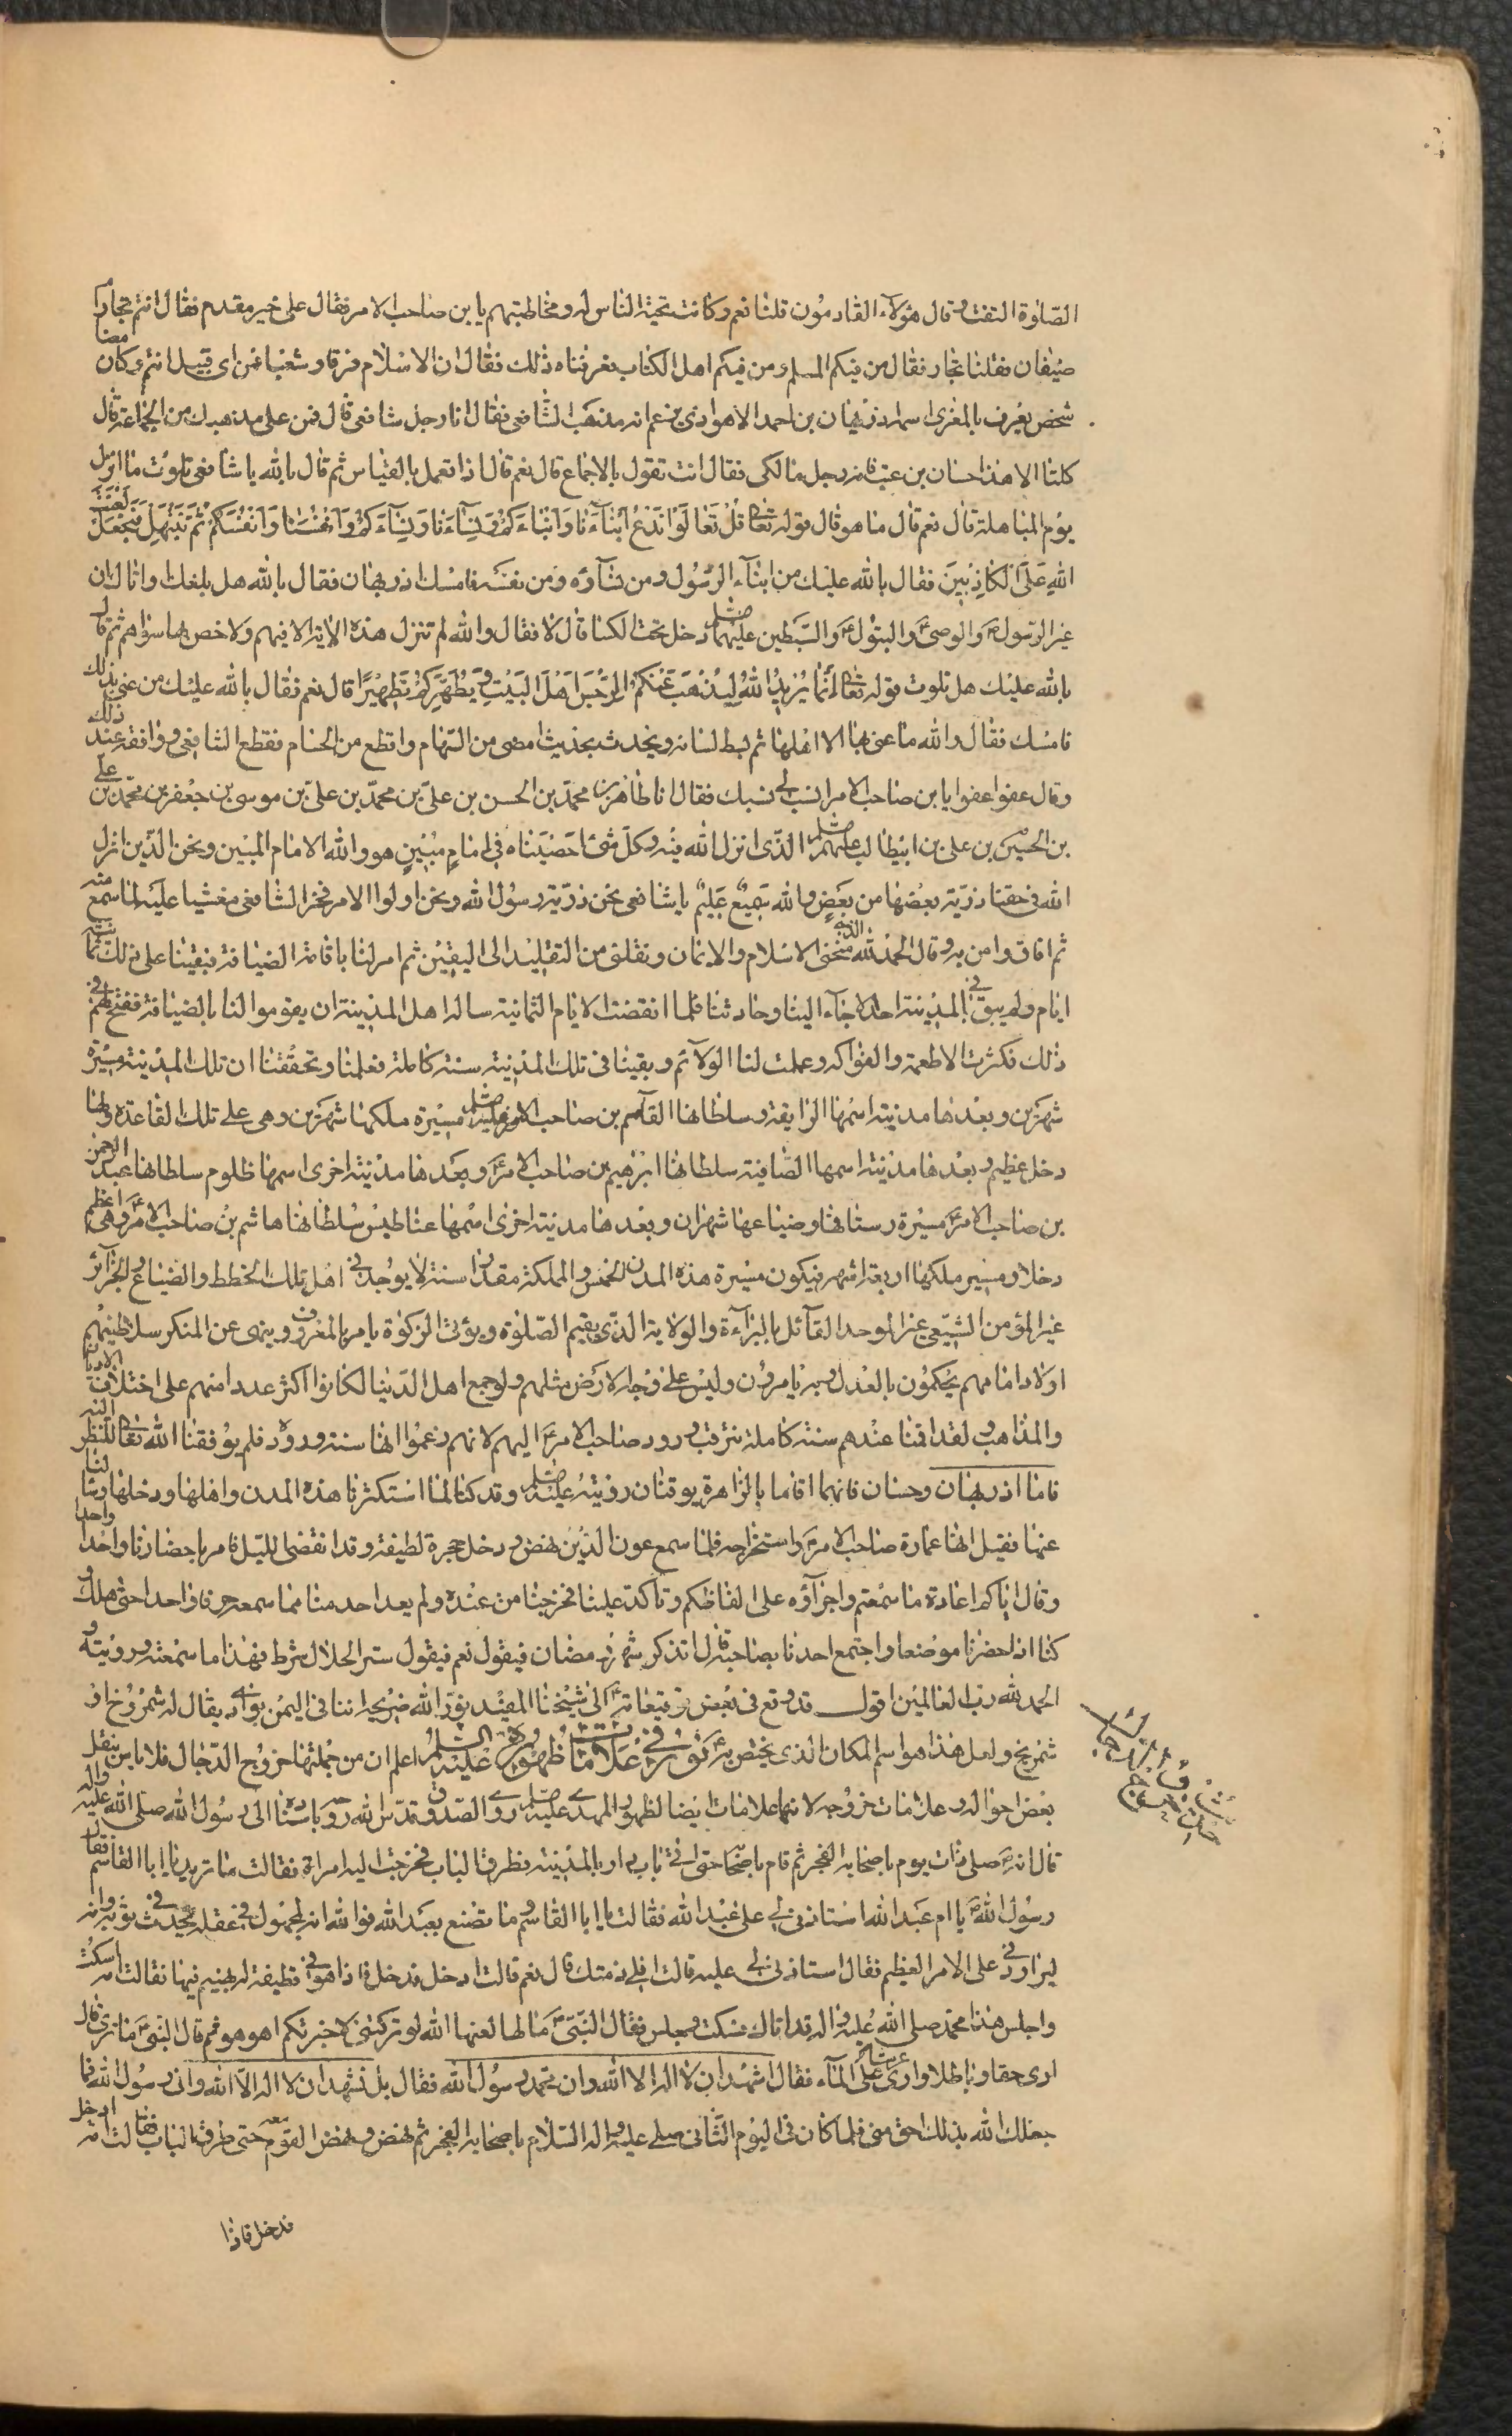 الصّلوة التفت وقال هؤلآء القادمون قلنا نعم وكانت تحية الناس له ومخاطبتهم يا بن صاحب الامر فقال على خير مقدم فقال انتم تجار ام
ضيفان فقلنا تجار فقال من منكم المسلم ومن منكم اهل الكتاب فعرفناه ذلك فقال ان الاسلام فرقا وشعبا فمن اى قبيل انتم وكان معنا
شخص يعرف بالمقرى اسمه روزبهان بن احمد الاهوازى يزعم انه مذهب الشافعى فقال انا رجل شافعى قال فمن على مذهبك من الجماعة قال
كلنا الا هذا حسان بن غيث فانه رجل مالكى فقال انت تقول بالاجماع قال نعم قال اذا تعمل بالقياس ثم قال بالله يا شافعى تلوت ما انزل
يوم المباهلة قال نعم قال ما هو قال قوله تعا قُلْ تَعَالَوْا نَدْعُ اَبْنآءَنا وَاَبْناءَكُمْ وَنِسآءَنا وَنِسآءَكُمْ وَاَنْفُسَنا وَاَنْفُسَكُمْ ثُمَّ نَبْتَهِلْ فَنَجْعَلْ لَعْنَةَ
اللهِ عَلَى الْكاذِبينَ فقال بالله عليك من ابنآء الرّسول ومن نسآؤه ومن نفسه فامسك اذربهان فقال بالله هل بلغك واتاك ان
غير الرّسول ص والوصى ع والبتول ع والسبطين عليهما دخل تحت الكسا قال لا فقال والله لم تنزل هذه الاية الا فيهم ولا خص بها سواهم ثم قال
بالله عليك هل تلوت قوله تعا اِنَّما يُريدُ اللهُ لِيُذْهِبَ عَنْكُمُ الرِّجْسَ اَهْلَ الْبَيْتِ وَيُطَهِّرَكُمْ تَطْهيرًا قال نعم فقال بالله عليك من عنى بذلك
فامسك فقال والله ما عنى بها الا اهلها ثم بسط لسانه ويحدث بحديث امضى من السّهام واقطع من الحسام فقطع الشافعى ووافقه عند ذلك
وقال عفوا عفوا يا بن صاحب الامر انسب لى نسبك فقال انا طاهر بن محمد بن الحسن بن علىّ بن محمّد بن علىّ بن موسى بن جعفر بن محمّد بن على
بن الحسين بن على بن ابيطالب عليهم الذى انزل الله فيه وكلّ شئ احصيناه فى امام مبين هو والله الامام المبين ونحن الذين انزل
الله فى حقنا ذرّيّة بعضها من بعض والله سميع عليم يا شافعى نحن ذرّية رسول الله ونحن اولوا الامر فخر الشافعى مغشيا عليه لما سمع منه
ثم افاق وامن به وقال الحمد لله الذى منحنى الاسلام والايمان ونقلنى من التقليد الى اليقين ثم امر لنا باقامة الضيافة فبقينا على ذلك ثمانية
ايام ولم يبق فى المدينة احد الا جآء الينا وحادثنا فلما انقضت الايام الثمانية ساله اهل المدينة ان يقوموا لنا بالضيافة ففتح لهم فى
ذلك فكثرت الاطعمة والفواكه وعملت لنا الولآئم وبقينا فى تلك المدينة سنة كاملة فعلمنا وتحققنا ان تلك المدينة مسيرة
شهرين وبعدها مدينة اسمها الرايقة وسلطانها القآسم بن صاحب الامر عليه مسيرة ملكها شهرين وهى على تلك القاعدة ولها
دخل عظيم وبعدها مدينة اسمها الصّافية سلطانها ابرهيم بن صاحب الامر ع وبعدها مدينة اخرى اسمها ظلوم سلطانها عبد الرحمن
بن صاحب الامر ع مسيرة رستاقها وضياعها شهران وبعدها مدينة اخرى اسمها عناطيس سلطانها هاشم بن صاحب الامر ع وهى اعظم
دخلا ومسير ملكها اربعة اشهر فيكون مسيرة هذه المدن الخمس والمملكة مقدار سنة لا يوجد فى اهل تلك الخطط والضياع والجزآئر
غير المؤمن الشيعى غير الموحد القآئل بالبرآءة والولاية الذى يقيم الصّلوة ويؤتى الزكوة يامر بالمعروف وينهى عن المنكر سلاطينهم
اولاد امامهم يحكمون بالعدل وبه يامرون وليس على وجه الارض مثلهم ولو جمع اهل الدّنيا لكانوا اكثر عددا منهم على اختلاف الاديان
والمذاهب ولقد اقمنا عندهم سنة كاملة نترقب ورود صاحب الامر ع اليهم لانهم زعموا انها سنة وروده فلم يوفقنا الله تعا للنظر اليه
فاما اذربهان وحسان فانهما اقاما بالزاهرة يرقبان رؤيته عليه وقد كنا لما استكثرنا هذه المدن واهلها ودخلها وسالنا
عنها فقيل انها عمارة صاحب الامر ع واستخراجه فلما سمع عون الدّين نهض ودخل حجرة لطيفة وقد انقضى الليل فامر باحضارنا واحدا واحدا
وقال اياكم اعادة ما سمعتم واجرآؤه على الفاظكم وتاكد علينا فخرجنا من عنده ولم يعد احد منا مما سمعه حرفا واحدا حتى هلك
كنا اذا حضرنا موضعا واجتمع احدنا بصاحبه قال اتذكر شهر رمضان فيقول نعم فيقول ستر الحلال شرط فهذا ما سمعته ورويته
الحمد لله رب العالمين اقول قد وقع فى بعض توقيعاته ع الى شيخنا المفيد نوّر الله ضريحه اننا فى اليمن بواد يقال له شمروخ او
شمريخ ولعل هذا هو اسم المكان الذى يختص به ع نور فى علامات ظهوره عليه السلم اعلم ان من جملتها خروج الدّجال فلا باس بنقل
بعض احواله وعلامات خروجه لانها علامات ايضا لظهور المهدى عليه روى الصّدوق قدّس الله روحه باسناده الى رسول الله صلى الله عليه واله
قال انه ص صلى ذات يوم باصحابه الفجر ثم قام باصحابه حتى اتى باب دار بالمدينة فطرق الباب فخرجت اليه امراة فقالت ما تريد يا ابا القاسم فقال
رسول الله ص يا ام عبد الله استاذنى لى على عبد الله فقالت يا ابا القاسم وما تصنع بعبد الله فوالله انه لمجهول فى عقله يحدث فى ثوبه وانه
ليراودنى على الامر العظيم فقال استاذنى لى عليه قالت افى ذمتك قال نعم قالت ادخل فدخل فاذا هو فى قطيفة له يهينم فيها فقالت امه اسكت
واجلس هذا محمد صلى الله عليه واله قد اتاك فسكت وجلس فقال النبىّ ص ما لها لعنها الله لو تركتنى لاخبرتكم اهو هو ثم قال النبىّ ص ما ترى قال
ارى حقا وباطلا وارى عرشا على المآء فقال اشهد ان لا اله الا الله وان محمد رسول الله فقال بل تشهد ان لا اله الا الله وانى رسول الله فما
جعلك الله بذلك احق منى فلما كان فى اليوم الثانى صلى عليه واله السّلام باصحابه الفجر ثم نهض ونهض القوم معه حتى طرق الباب فقالت امه ادخل
فدخل فاذا